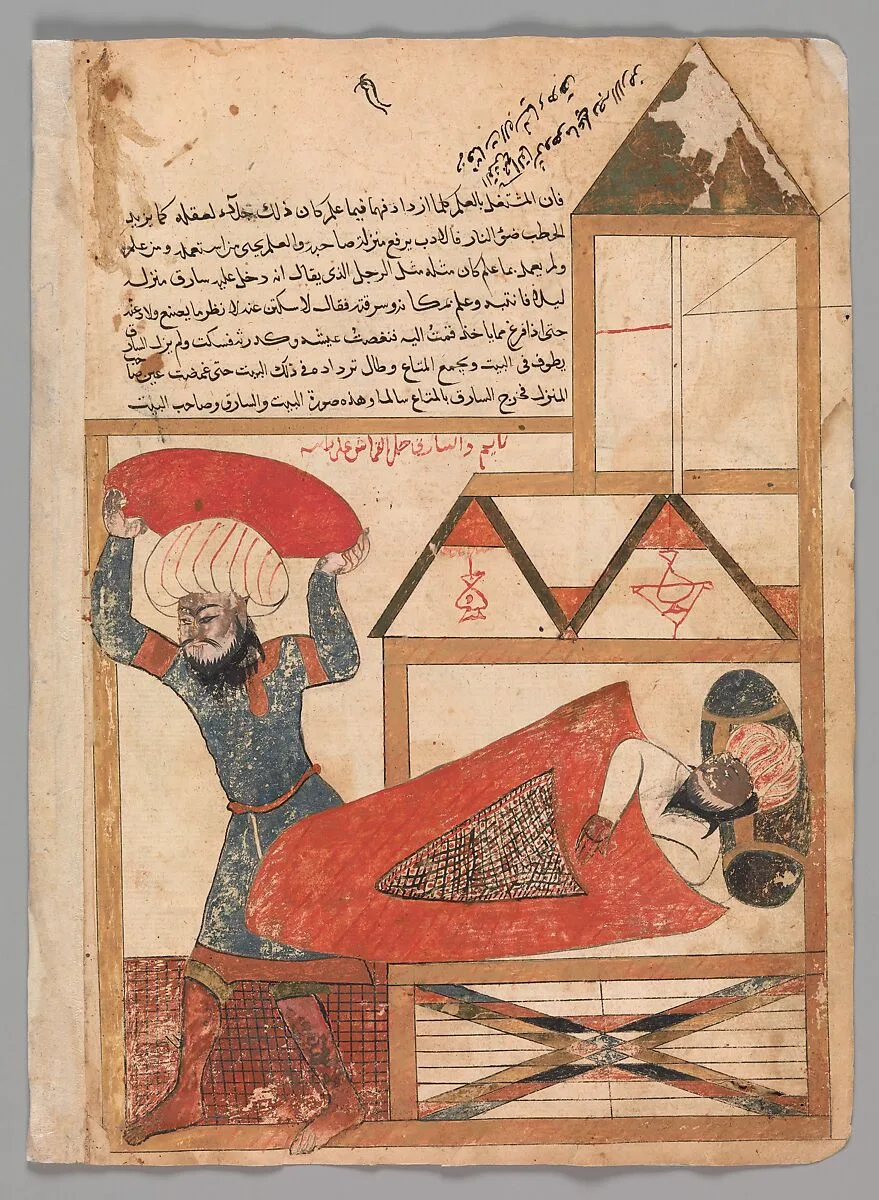 فان المشتغل بالعلم كلما ازداد فهما فيما علم كان ذلك جلاء لعقله كما يزيد
الحطب ضوء النار فالادب يرفع منزلة صاحبه والعلم يحيى من استعمله ومن علم
ولم يعمل بما علم كان مثله مثل الرجل الذى يقال انه دخل عليه سارق منزله
ليلا فانتبه وعلم بمكانه وسرقته فقال لاسكتن عنه لانظر ما يصنع ولادعنه
حتى اذا فرغ مما ياخذ قمت اليه فنغصت عيشه وكدرته فسكت ولم يزل السارق
يطوف فى البيت ويجمع المتاع وطال تردده فى ذلك البيت حتى غمضت عين صاحب
المنزل فخرج السارق بالمتاع سالما وهذه صورة البيت والسارق وصاحب البيت
نايم والسارق حمل القماش على راسه